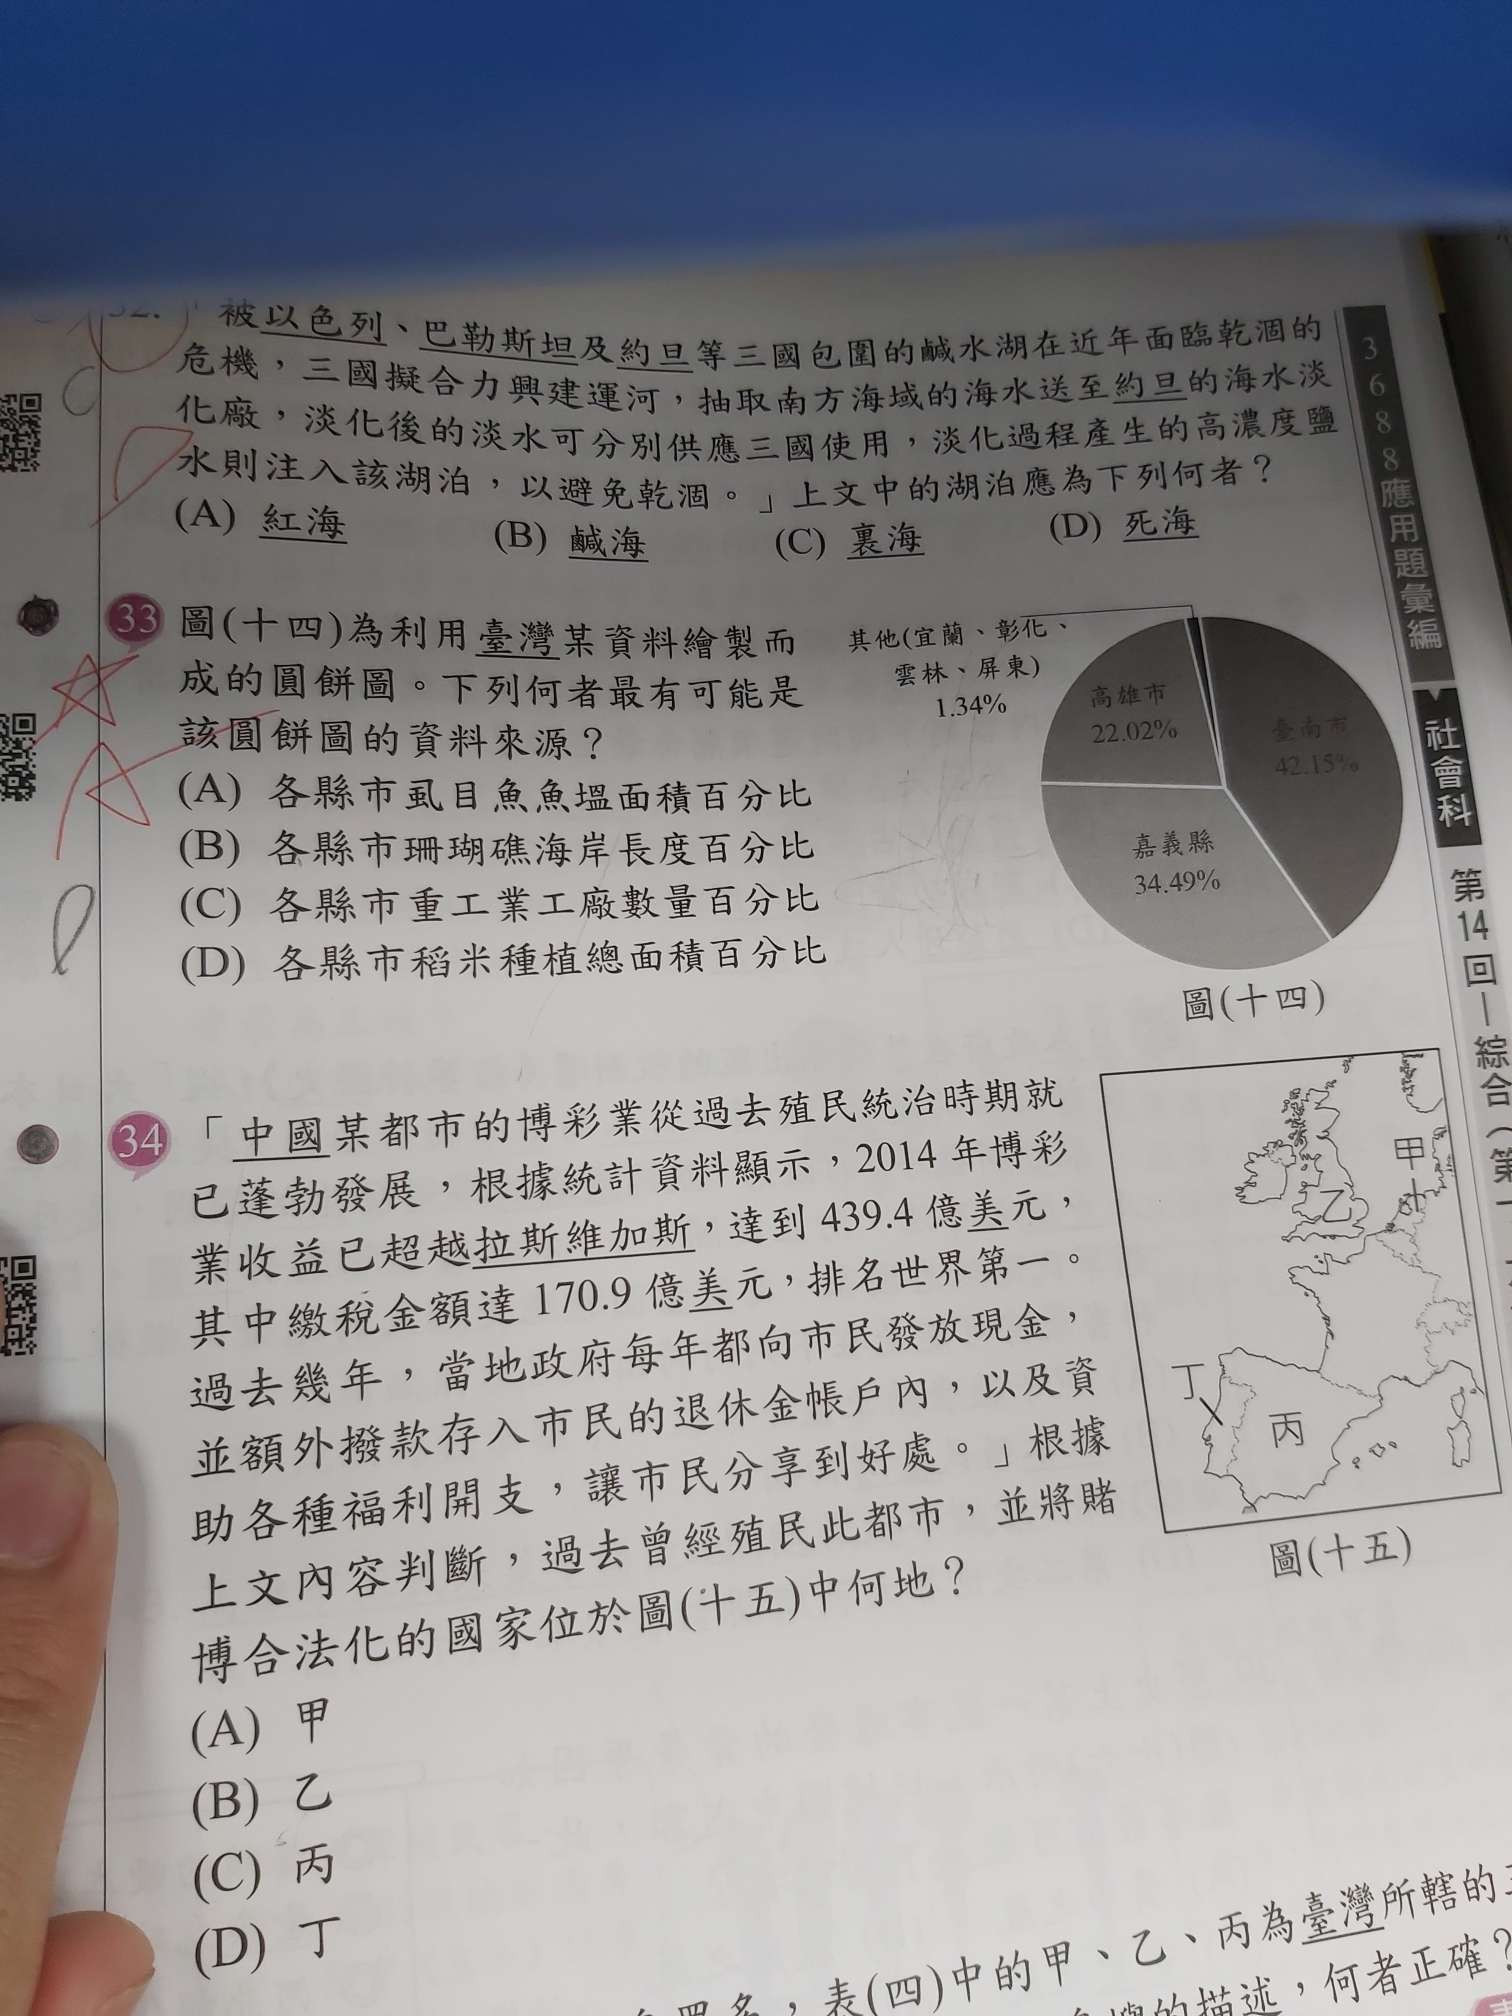 32.「被以色列、巴勒斯坦及約旦等三國包圍的鹹水湖在近年面臨乾涸的
危機，三國擬合力興建運河，抽取南方海域的海水送至約旦的海水淡
化廠，淡化後的淡水可分別供應三國使用，淡化過程產生的高濃度鹽
水則注入該湖泊，以避免乾涸。」上文中的湖泊應為下列何者？
(A) 紅海 (B) 鹹海 (C) 裏海 (D) 死海
33 圖(十四)為利用臺灣某資料繪製而
成的圓餅圖。下列何者最有可能是
該圓餅圖的資料來源？
(A) 各縣市虱目魚魚塭面積百分比
(B) 各縣市珊瑚礁海岸長度百分比
(C) 各縣市重工業工廠數量百分比
(D) 各縣市稻米種植總面積百分比
其他(宜蘭、彰化、
雲林、屏東)
1.34%
高雄市
22.02%
臺南市
42.15%
嘉義縣
34.49%
圖(十四)
34 「中國某都市的博彩業從過去殖民統治時期就
已蓬勃發展，根據統計資料顯示，2014 年博彩
業收益已超越拉斯維加斯，達到 439.4 億美元，
其中繳稅金額達 170.9 億美元，排名世界第一。
過去幾年，當地政府每年都向市民發放現金，
並額外撥款存入市民的退休金帳戶內，以及資
助各種福利開支，讓市民分享到好處。」根據
上文內容判斷，過去曾經殖民此都市，並將賭
博合法化的國家位於圖(十五)中何地？
(A) 甲
(B) 乙
(C) 丙
(D) 丁
甲
乙
丙
丁
圖(十五)
，表(四)中的甲、乙、丙為臺灣所轄的
的描述，何者正確？
3688應用題彙編
社會科
第14回─綜合(第